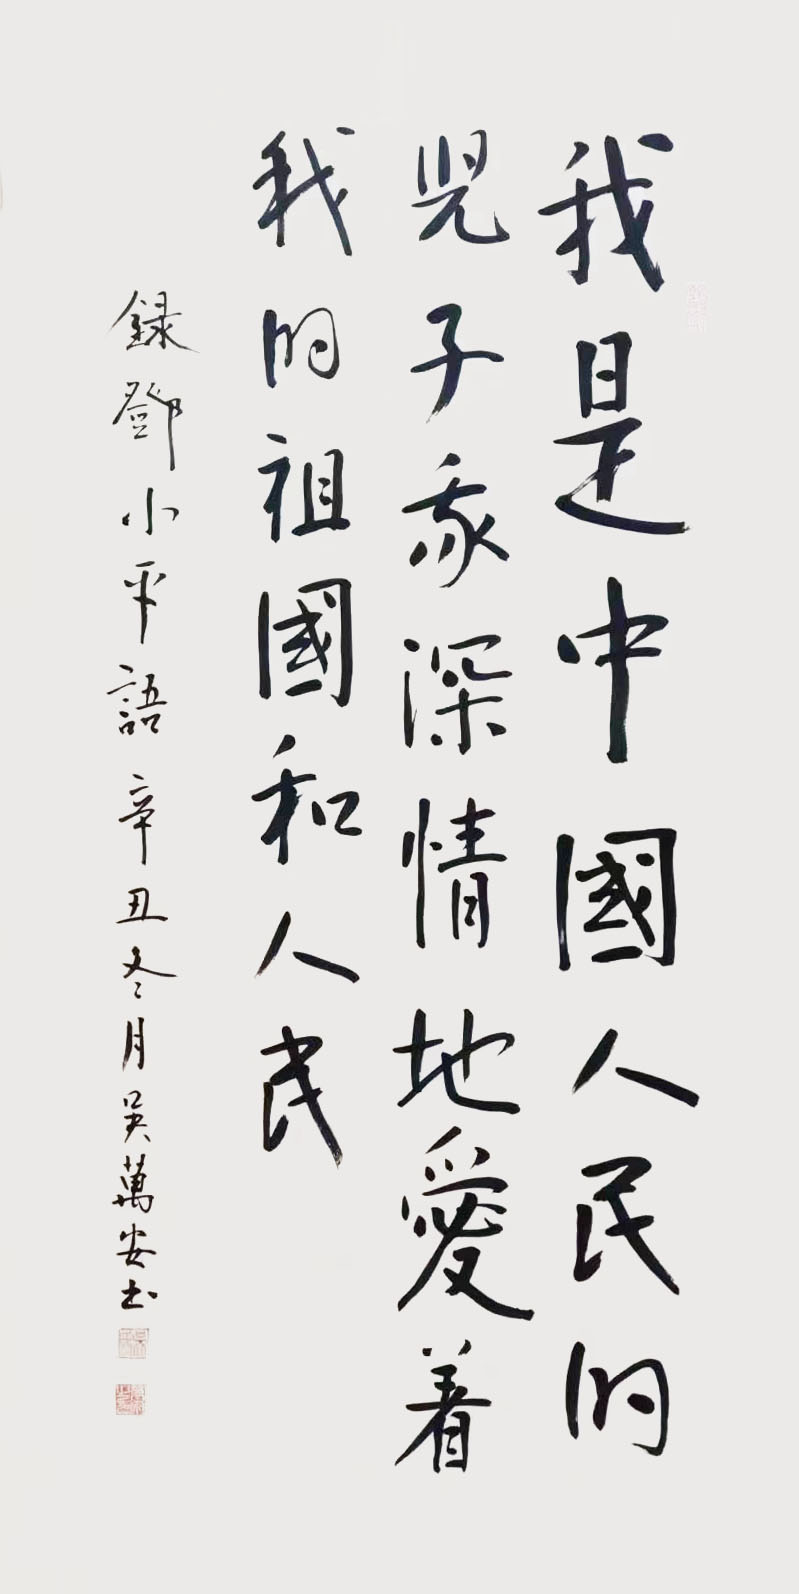 我是中國人民的
兒子我深情地愛着
我的祖國和人民
録鄧小平語辛丑冬月吳萬安书